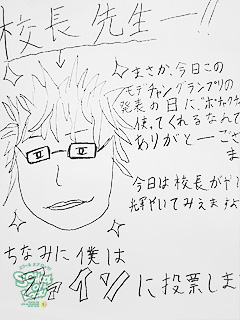 校長先生ー!!
まさか、今日この
モテチャングランプリの
発表の日に
使ってくれるなんて
ありがとーござ
ま
今日は校長がや
輝やいてみえますよ
ちなみに僕は
に投票しま